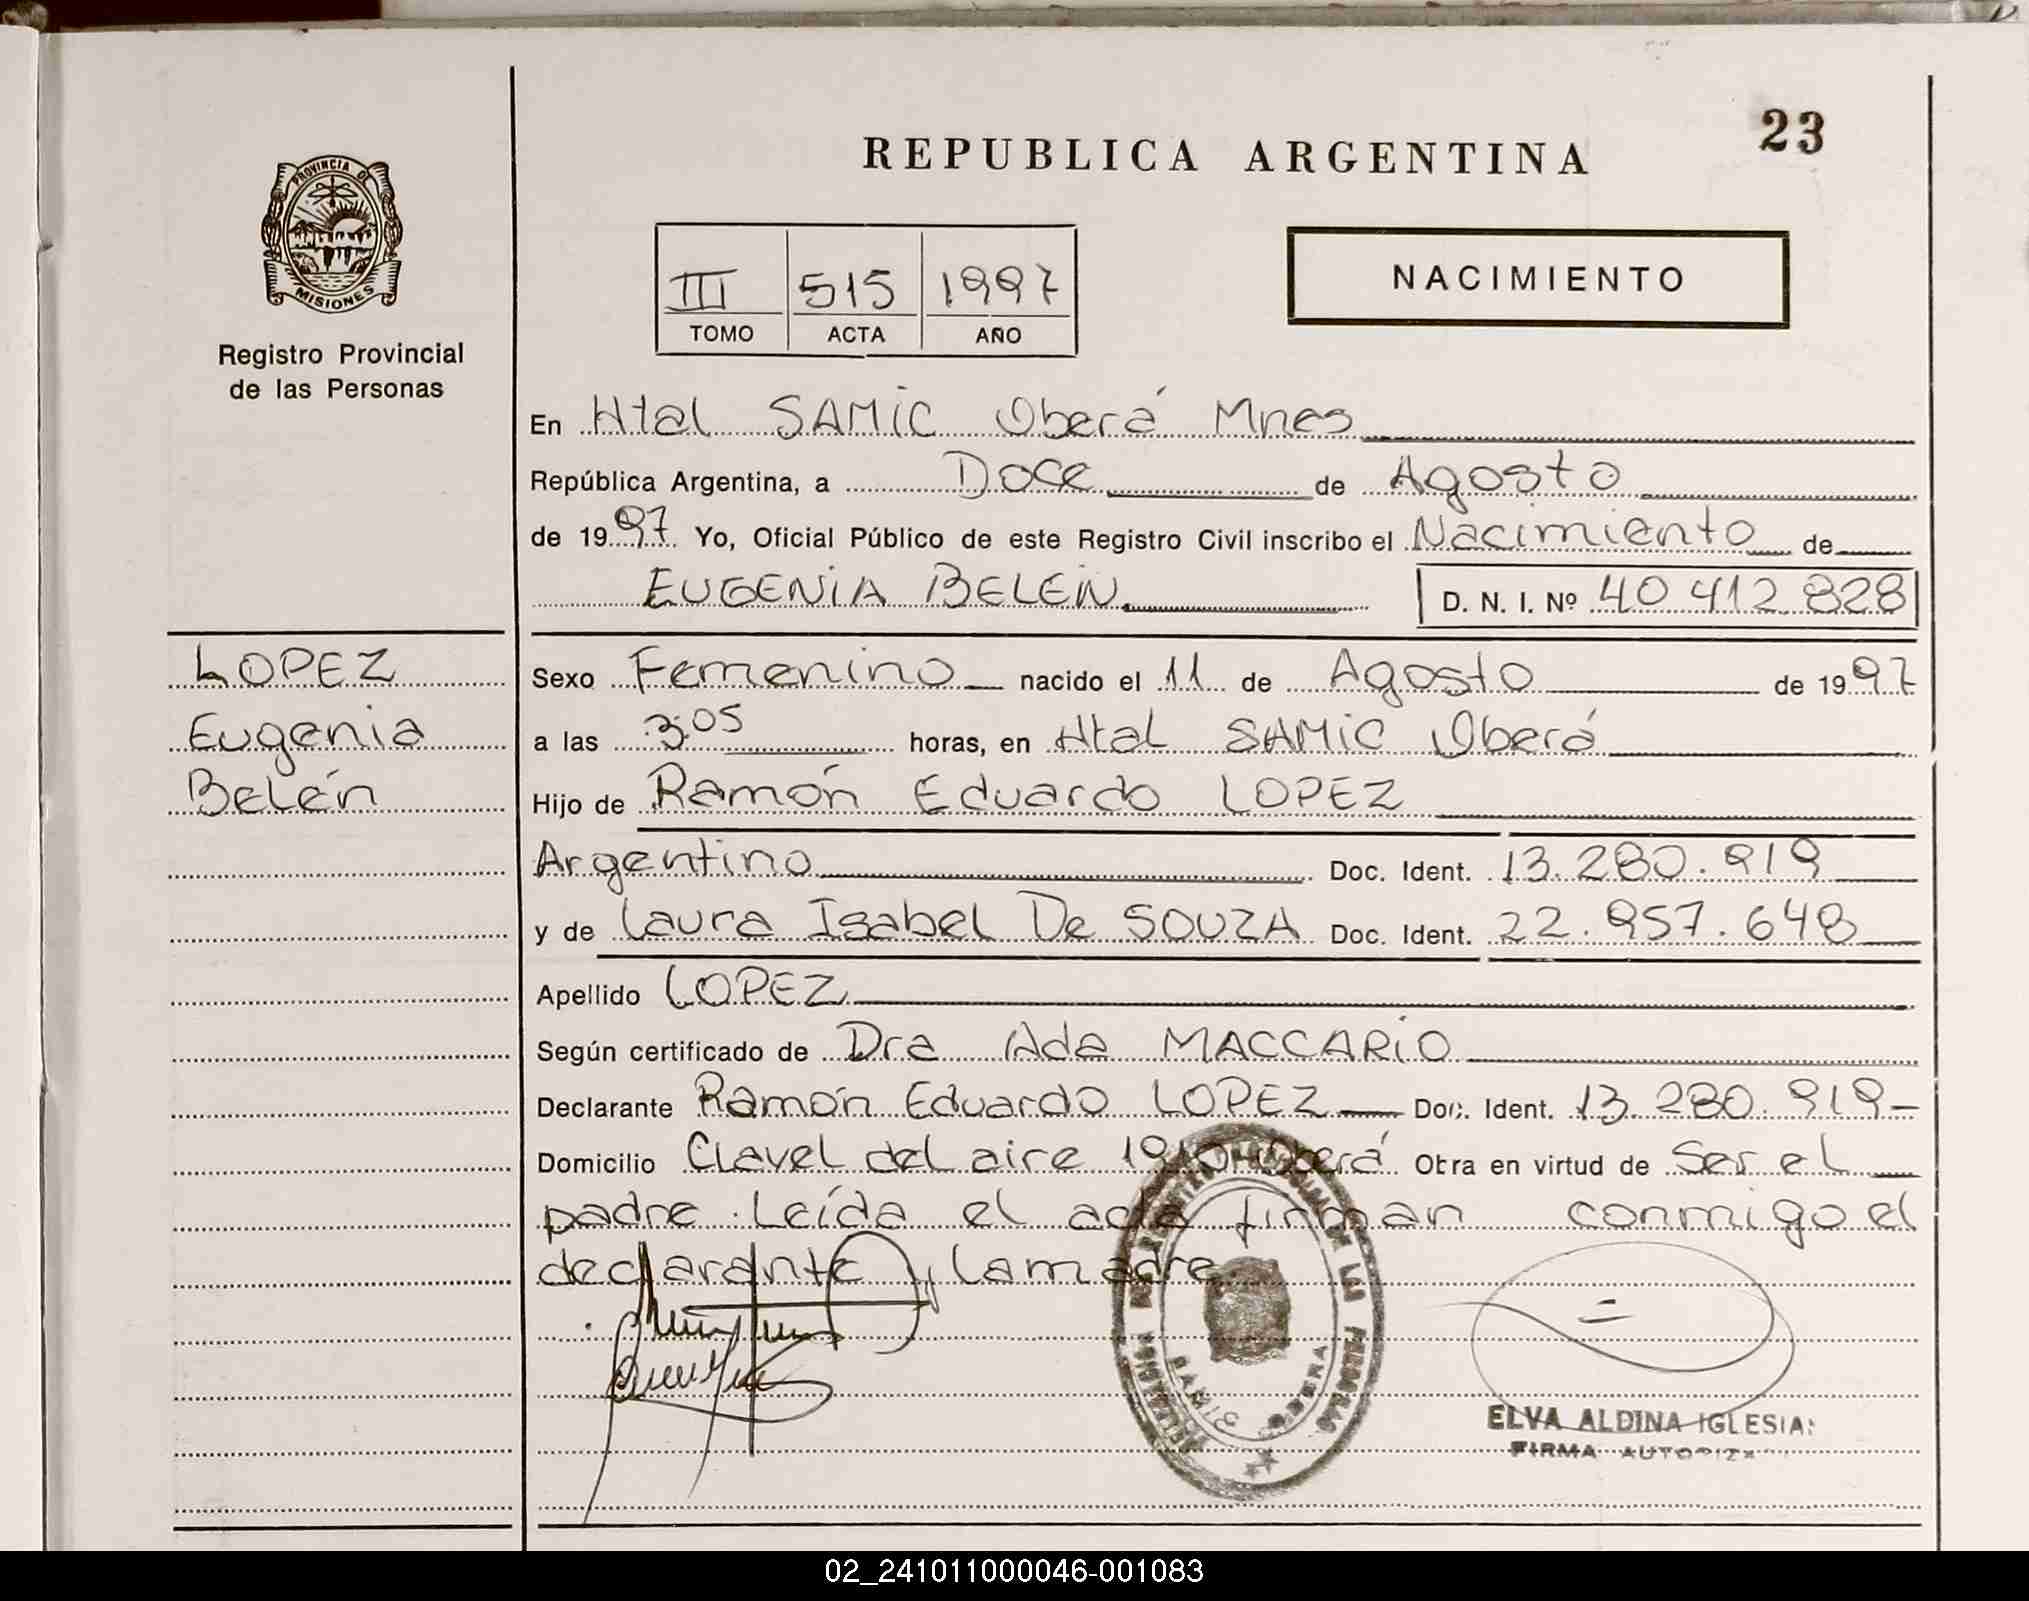 23
REPUBLICA ARGENTINA
PROVINCIA DE
MISIONES
Registro Provincial
de las Personas
III 515 1997
TOMO ACTA AÑO
NACIMIENTO
En Htal SAMIC Oberá Mnes
República Argentina, a Doce de Agosto
de 1997 Yo, Oficial Público de este Registro Civil inscribo el Nacimiento de
EUGENIA BELEN D. N. I. Nº 40 412 828
LOPEZ
Eugenia
Belén
Sexo Femenino nacido el 11 de Agosto de 1997
a las 3.05 horas, en Htal SAMIC Oberá
Hijo de Ramón Eduardo LOPEZ
Argentino Doc. Ident. 13.280.919
y de Laura Isabel De SOUZA Doc. Ident. 22.957.648
Apellido LOPEZ
Según certificado de Dra Ada MACCARIO
Declarante Ramón Eduardo LOPEZ Doc. Ident. 13.280.919-
Domicilio Clavel del aire 1910 Oberá Obra en virtud de Ser el
padre. Leída el acta firman conmigo el
declarante y la madre.
DE LAS PERSONAS
SAMIC OBERA
ELVA ALDINA IGLESIAS
FIRMA AUTORIZA
02_241011000046-001083